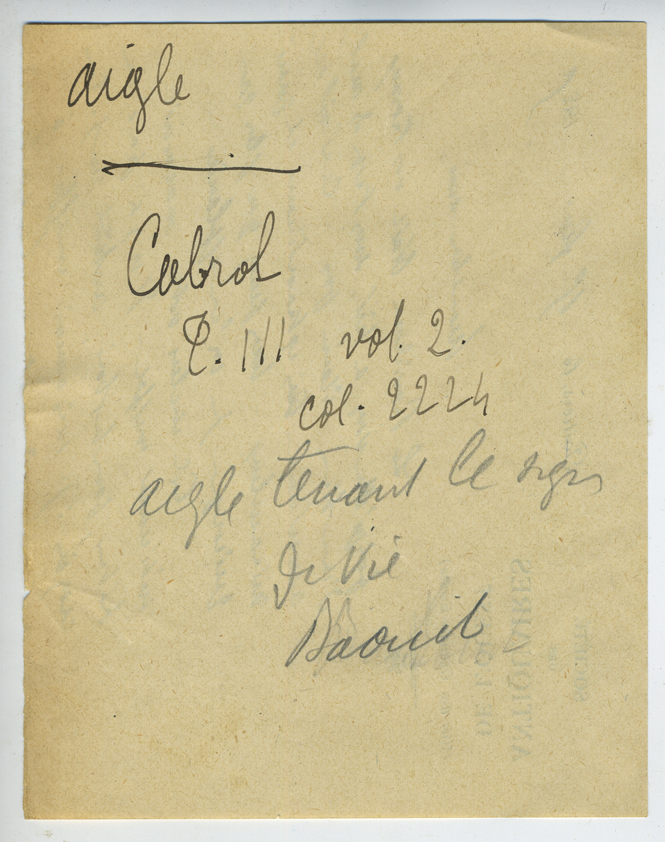 aigle
Cabrol
T. III vol. 2.
col. 2224
aigle tenant le signe
de Vie
Baouit